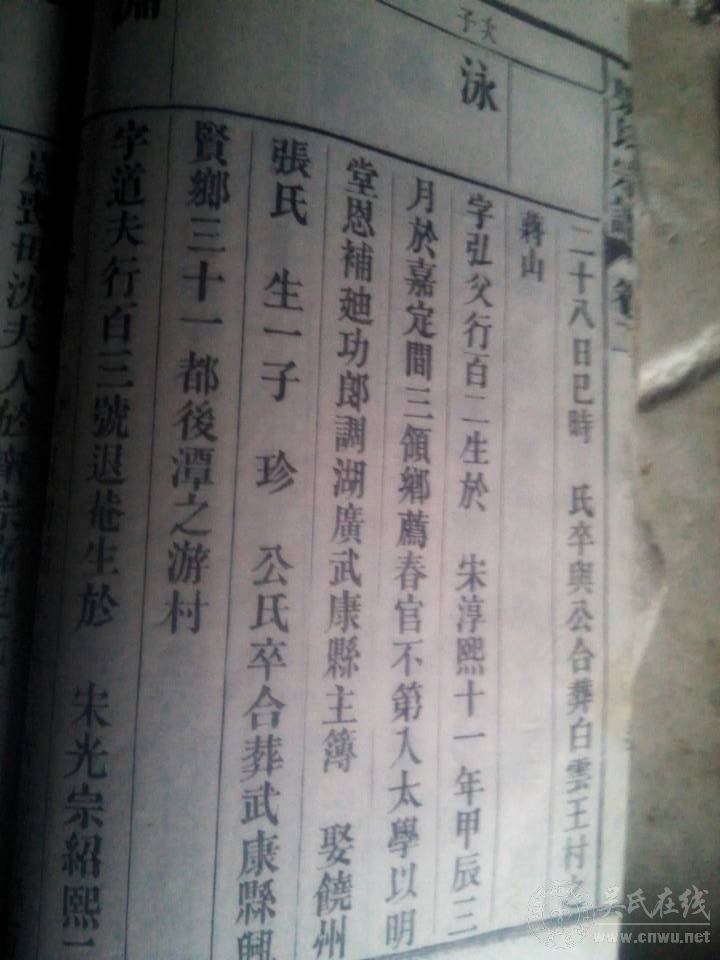 吳氏宗譜 卷二
二十八日巳時 氏卒與公合葬白雲王村之
蔣山
次子
泳
字弘父行百二生於 宋淳熙十一年甲辰三
月於嘉定間三領鄉薦春官不第入太學以明
堂恩補廸功郎調湖廣武康縣主簿 娶饒州
張氏 生一子 珍 公氏卒合葬武康縣興
賢鄉三十一都後潭之游村
字道夫行百三號退菴生於 宋光宗紹熙
母沈夫人於
吴氏在线
www.cnwu.net